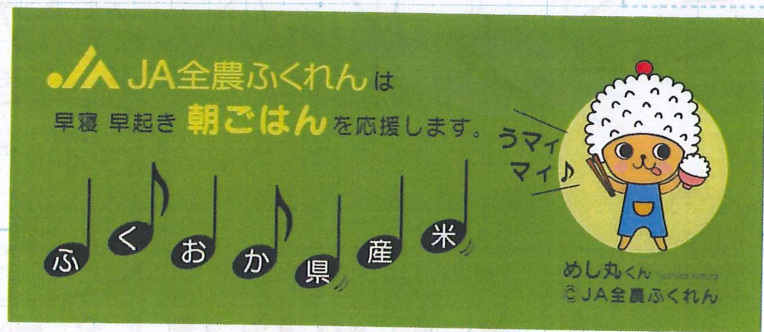 JA JA全農ふくれんは
早寝 早起き 朝ごはんを応援します。
ふくおか県産米
うマィ
マィ♪
めし丸くん
©JA全農ふくれん